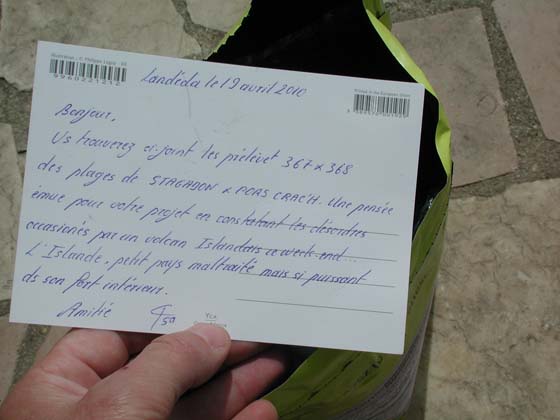 9960221212
Landéda le 19 avril 2010
Bonjour,
Vs trouverez ci-joint les prélèvet 367 & 368
des plages de STAGADON & PORS CRAC'H. Une pensée
émue pour votre projet en constatant les désordres
occasionés par un volcan Islandais ce week-end...
L'Islande, petit pays maltraité mais si puissant
ds son fort intérieur.
Amitié